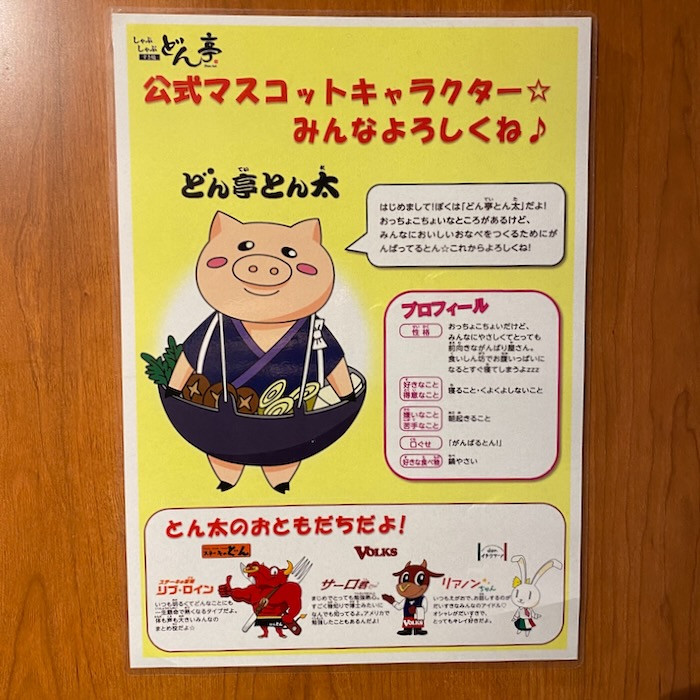 しゃぶ
しゃぶ
どん亭
公式マスコットキャラクター☆
みんなよろしくね♪
どん亭とん太
はじめまして!ぼくは「どん亭とん太」だよ!
おっちょこちょいなところがあるけど、
みんなにおいしいおなべをつくるためにが
んばってるとん☆これからよろしくね!
プロフィール
性格
おっちょこちょいだけど、
みんなにやさしくてとっても
前向きながんばり屋さん。
食いしん坊でお腹いっぱいに
なるとすぐ寝てしまうよzzz
好きなこと
得意なこと
寝ること・くよくよしないこと
嫌いなこと
苦手なこと
朝起きること
口ぐせ
「がんばるとん!」
好きな食べ物
鍋やさい
とん太のおともだちだよ!
ステーキのどん
リブ・ロイン
いつも明るくてどんなことにも
一生懸命で熱くなるタイプだよ。
体も声も大きいみんなの
まとめ役だよ☆
VOLKS
サーロ君
まじめでとっても勉強熱心。
すごく物知りで博士みたいに
なんでも知ってるよ。アメリカで
勉強したこともあるんだよ!
VOLKS
リアノンちゃん
いつもえがおで、お話しするのが
だいすきなみんなのアイドル♡
オシャレがだいすきで、
とってもキレイ好きだよ。